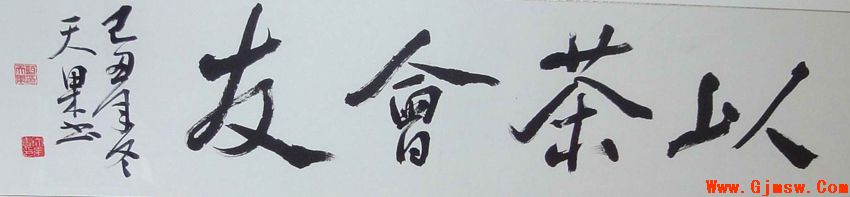 以茶會友
己丑年冬
天果书
Www.Gjmsw.Com